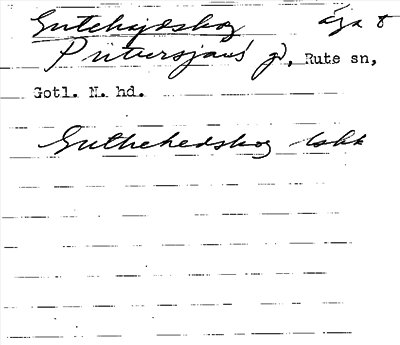 Gutehajdskog äga t
Pittersjaus' gd, Rute sn,
Gotl. N. hd.
Guthehedskog lshk